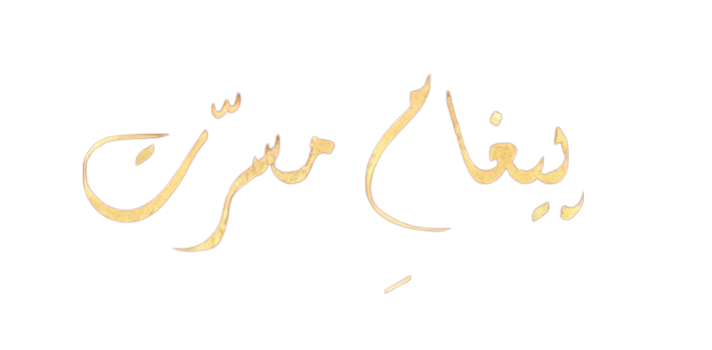 پیغامِ مسرّت